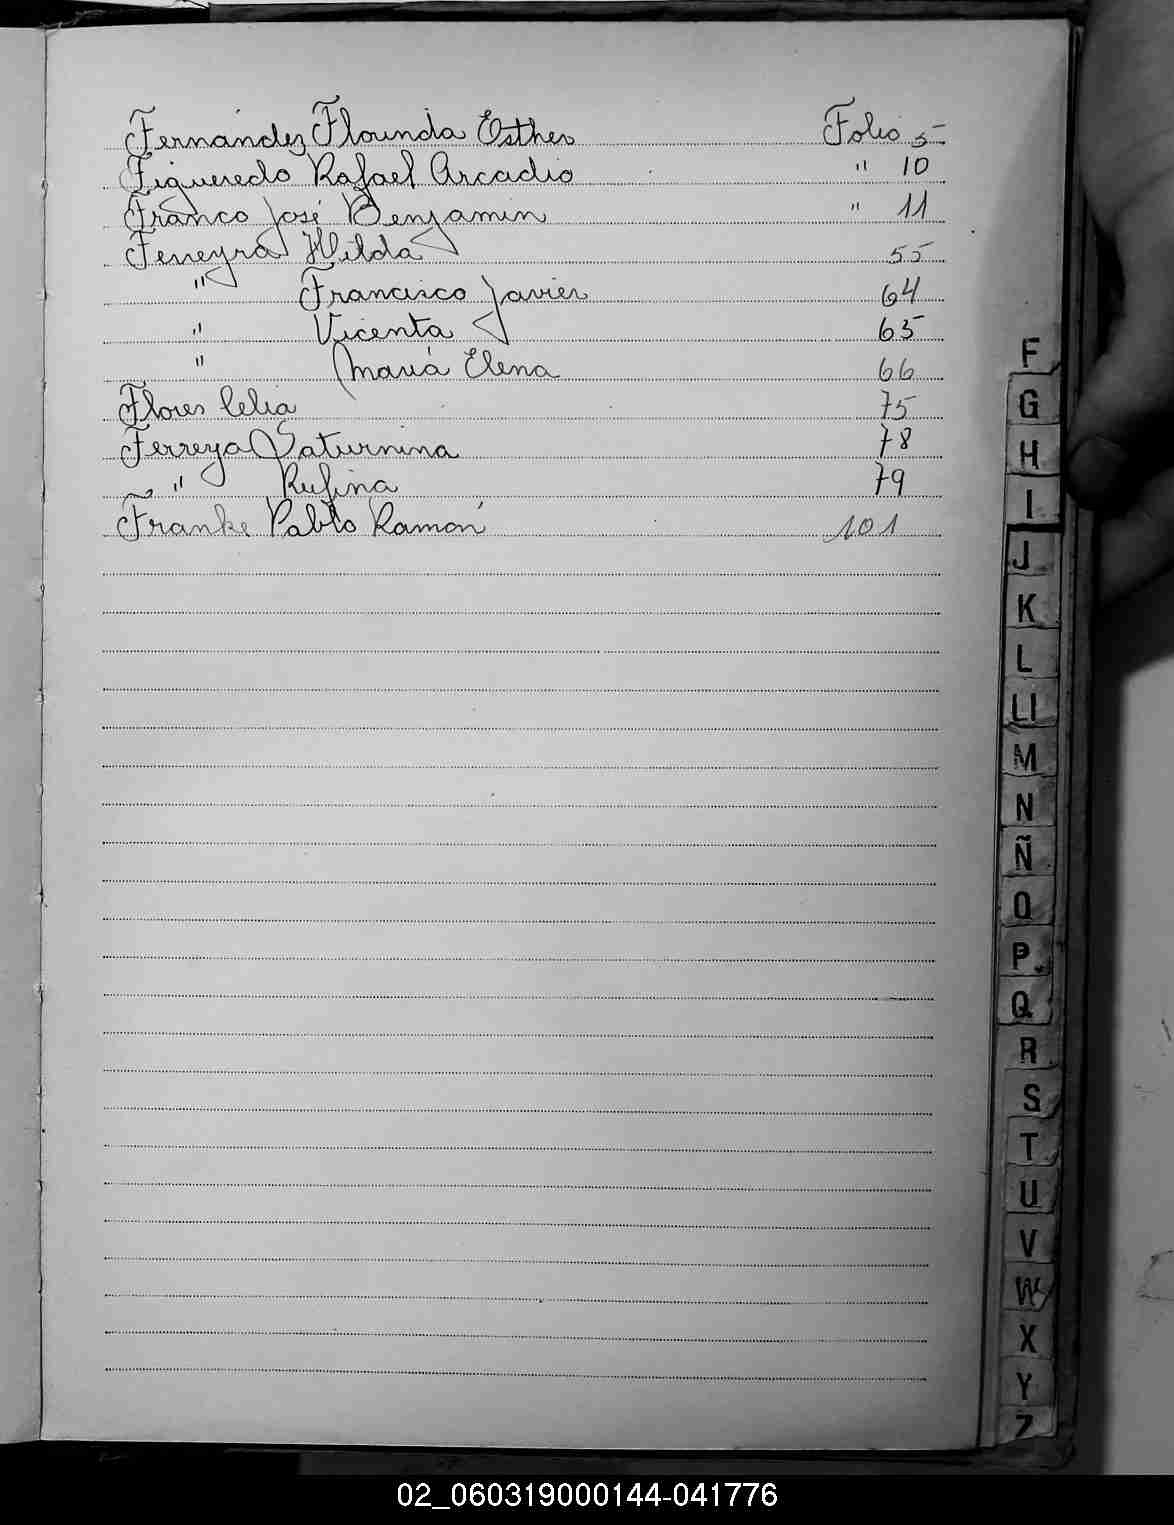 Fernández Florinda Esther Folio 5
Figueredo Rafael Arcadio " 10
Franco José Benjamin " 11
Ferreyra Hilda 55
" Francisco Javier 64
" Vicenta 65
" María Elena 66
Flores Celia 75
Ferreya Saturnina 78
" Rufina 79
Franke Pablo Ramón 101
F
G
H
I
J
K
L
Ll
M
N
Ñ
O
P
Q
R
S
T
U
V
W
X
Y
Z
02_060319000144-041776